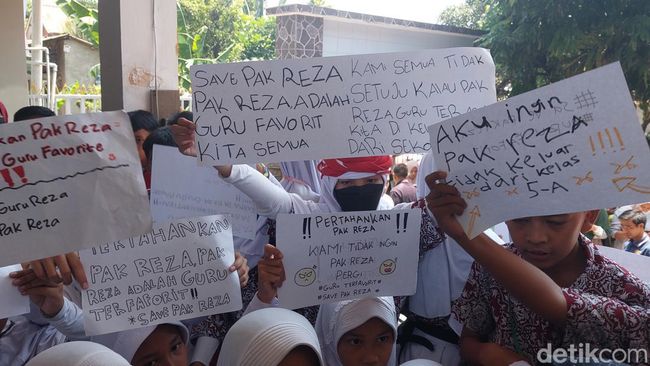 SAVE PAK REZA
PAK REZA ADALAH
GURU FAVORIT
KITA SEMUA
KAMI SEMUA TIDAK
SETUJU KALAU PAK
REZA GURU TER
KITA DI KE
DARI SEKO
AKU INGIN
PAK REZA
TIDAK KELUAR
DARI KELAS
5-A
###
!!!!
kan Pak Reza
Guru Favorite
!!
GuruReza
Pak Reza
PERTAHANKAN
PAK REZA, PAK
REZA ADALAH GURU
TERFAFORIT!!
*SAVE PAK REZA
!! PERTAHANKAN !!
PAK REZA
KAMI TIDAK INGIN
PAK REZA
PERGI
#GURU TERFAVORIT
#SAVE PAK REZA
detikcom